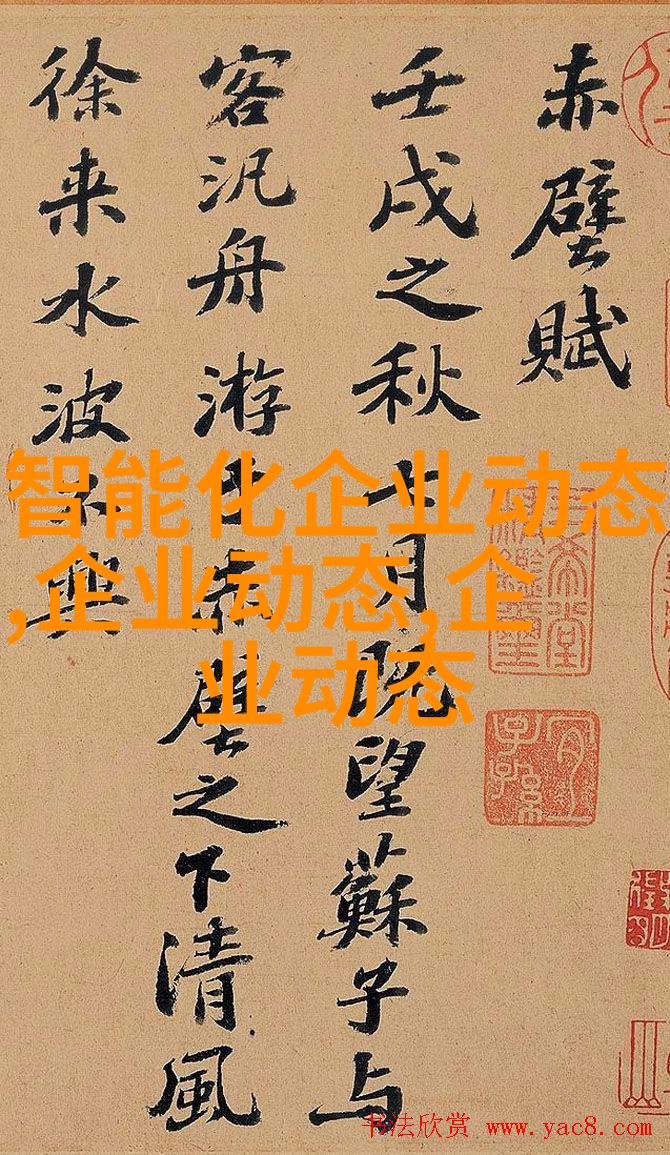 赤壁賦
壬戌之秋七月既望蘇子与
客汎舟游于赤壁之下清風
徐来水波不興
智能化企业动态
,企业动态,企
业动态
宜子孫
书法欣赏 www.yac8.com